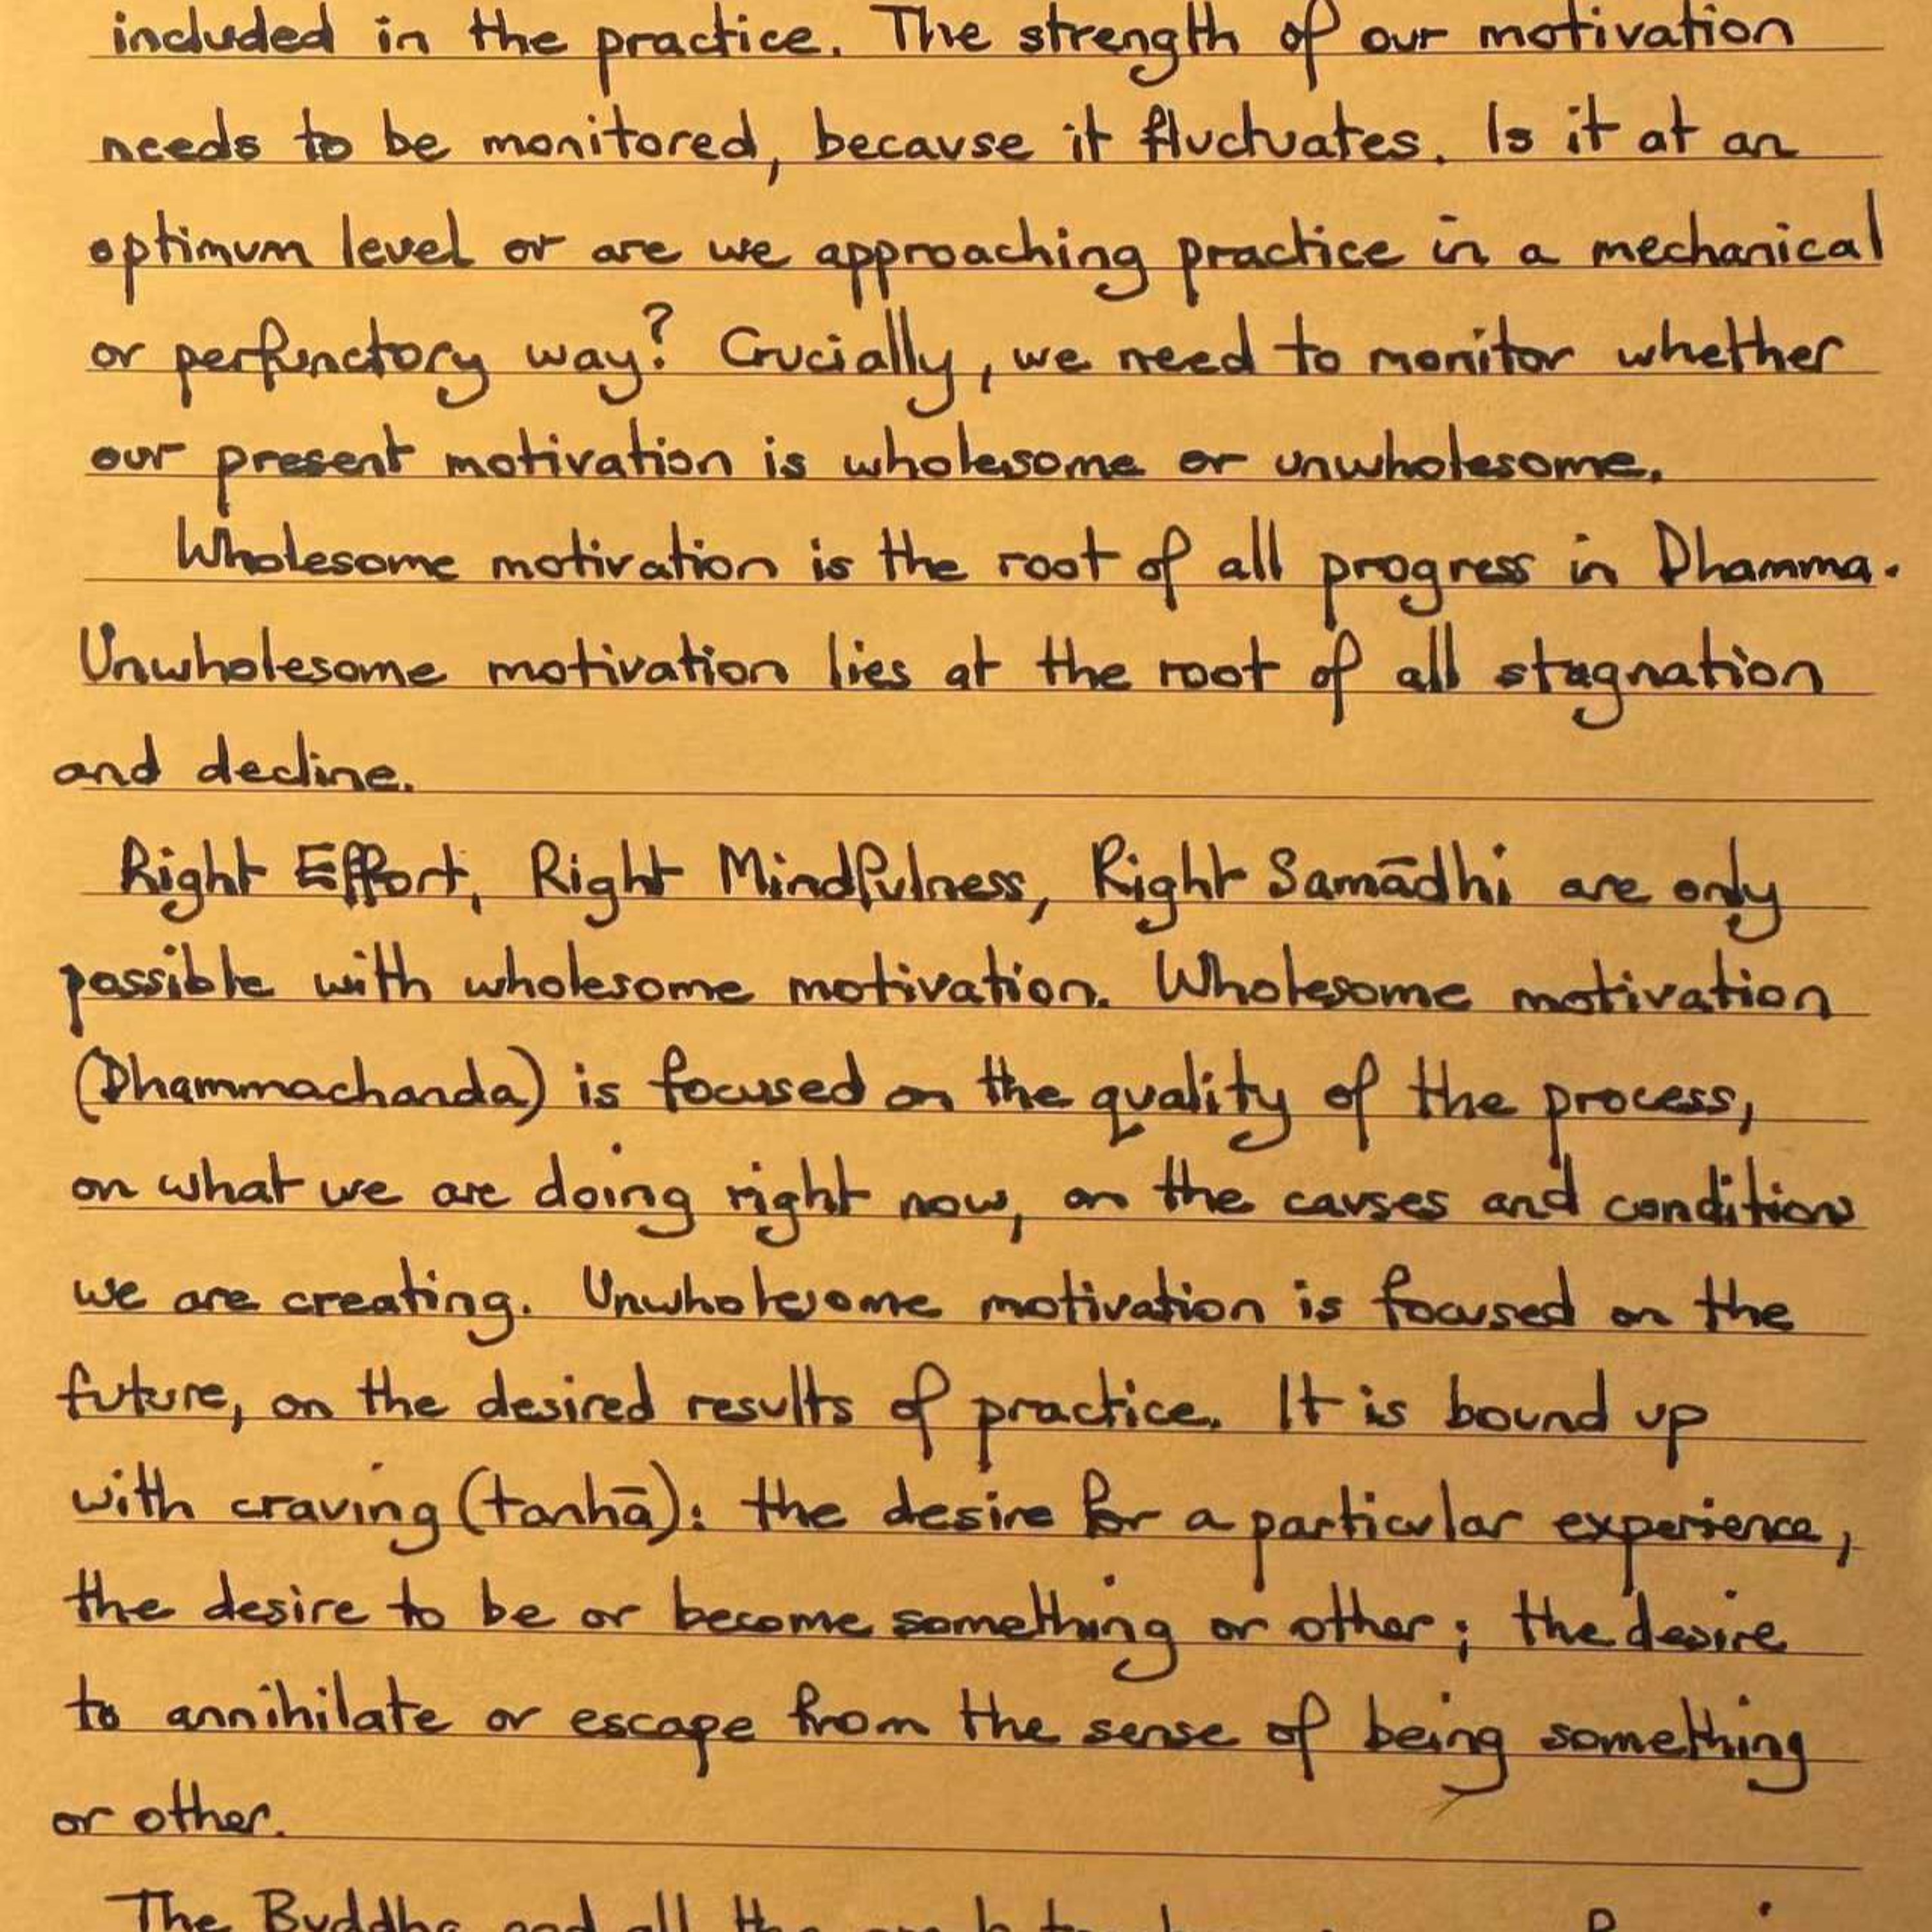 included in the practice. The strength of our motivation
needs to be monitored, because it fluctuates. Is it at an
optimum level or are we approaching practice in a mechanical
or perfunctory way? Crucially, we need to monitor whether
our present motivation is wholesome or unwholesome.
Wholesome motivation is the root of all progress in Dhamma.
Unwholesome motivation lies at the root of all stagnation
and decline.
Right Effort, Right Mindfulness, Right Samādhi are only
possible with wholesome motivation. Wholesome motivation
(Dhammachanda) is focused on the quality of the process,
on what we are doing right now, on the causes and conditions
we are creating. Unwholesome motivation is focused on the
future, on the desired results of practice. It is bound up
with craving (tanhā): the desire for a particular experience,
the desire to be or become something or other; the desire
to annihilate or escape from the sense of being something
or other.
The Buddha and all the